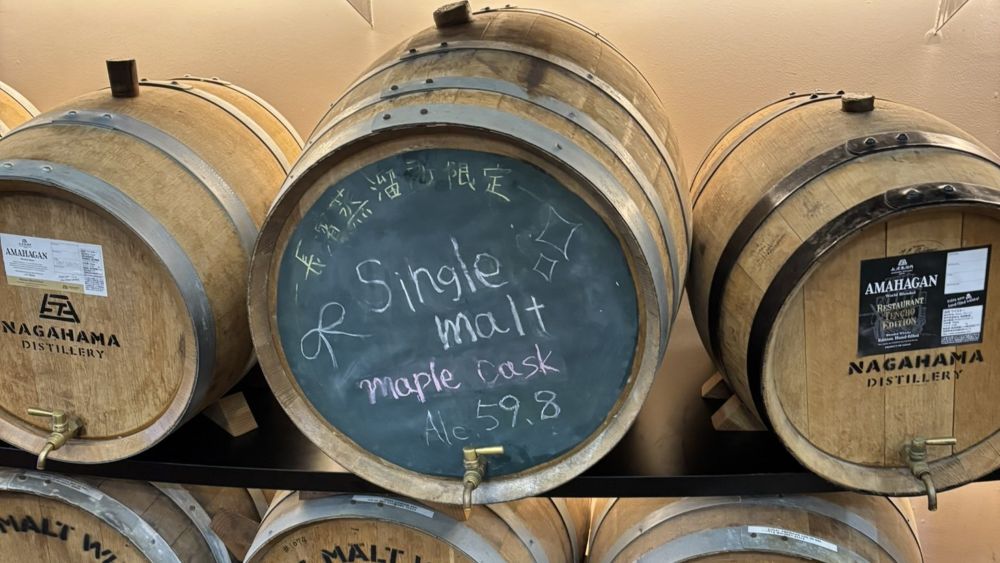 AMAHAGAN
NAGAHAMA
DISTILLERY
長濱蒸溜所限定
Single
malt
maple Cask
Alc.59.8
AMAHAGAN
World Blended
RESTAURANT
TENCHO
EDITION
NAGAHAMA
DISTILLERY
MALT W
MALT